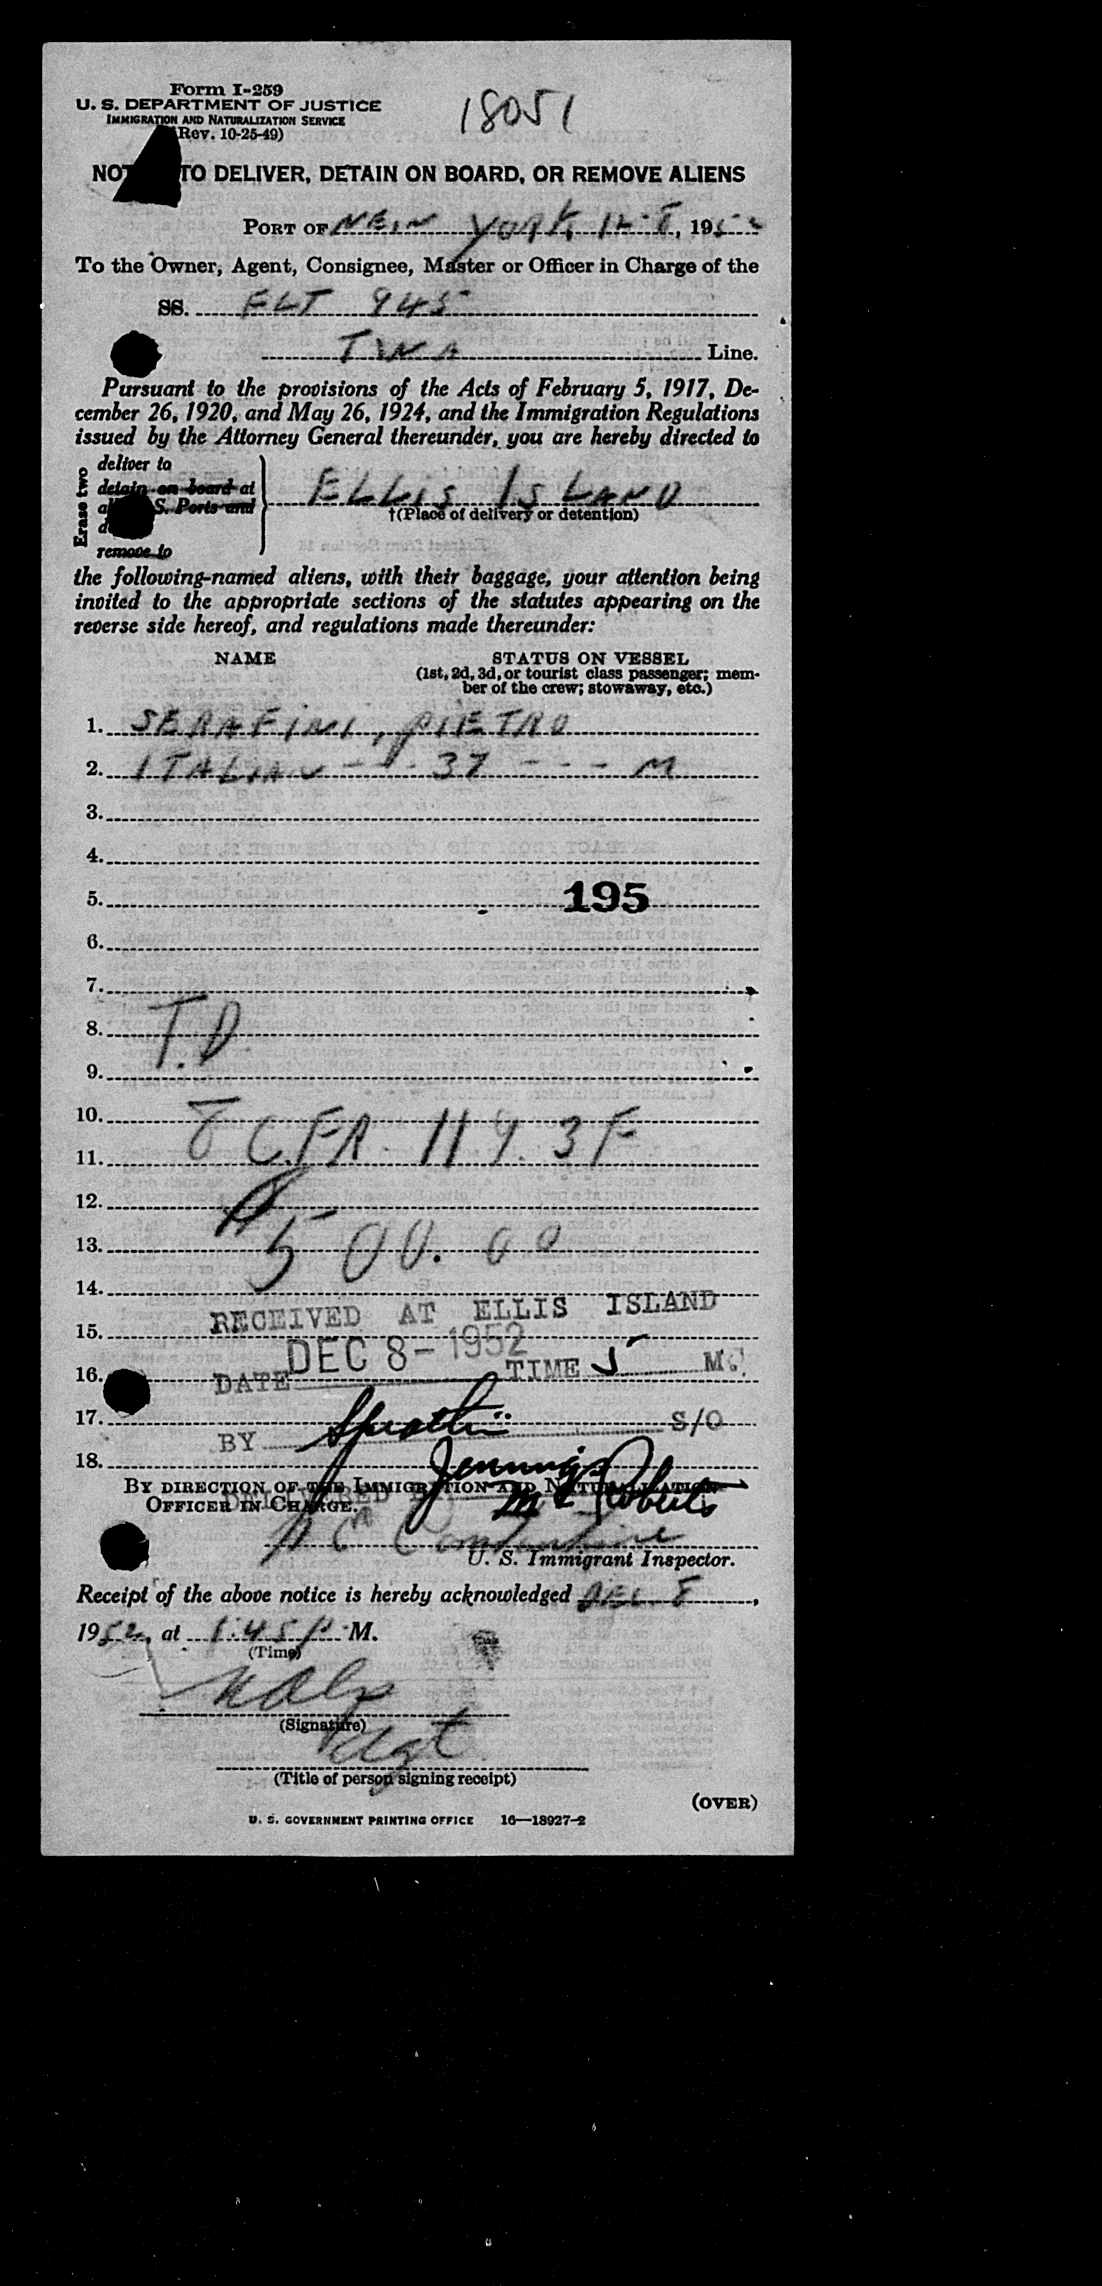 Form I-259
U. S. DEPARTMENT OF JUSTICE
IMMIGRATION AND NATURALIZATION SERVICE
(Rev. 10-25-49)
18051
TO DELIVER, DETAIN ON BOARD, OR REMOVE ALIENS
PORT OF NEW YORK 12-8, 1952
To the Owner, Agent, Consignee, Master or Officer in Charge of the
SS. FLT 945
TWA Line.
Pursuant to the provisions of the Acts of February 5, 1917, De-
cember 26, 1920, and May 26, 1924, and the Immigration Regulations
issued by the Attorney General thereunder, you are hereby directed to
Erase two
deliver to
detain on board at
S. Ports and
remove to
ELLIS ISLAND
†(Place of delivery or detention)
the following-named aliens, with their baggage, your attention being
invited to the appropriate sections of the statutes appearing on the
reverse side hereof, and regulations made thereunder:
NAME STATUS ON VESSEL
(1st, 2d, 3d, or tourist class passenger; mem-
ber of the crew; stowaway, etc.)
1. SERAFINI, PIETRO
2. ITALIAN - - - 37 - - - M
3.
4.
5. 195
6.
7.
8. T.D
9.
10.
11. 8 C.FR- 119.3F
12.
13. 500.00
14.
RECEIVED AT ELLIS ISLAND
15.
DATE DEC 8-1952 TIME 5 M.
16.
17.
BY S/O
18.
BY DIRECTION OF THE IMMIGRATION AND NATURALIZATION
OFFICER IN CHARGE.
U. S. Immigrant Inspector.
Receipt of the above notice is hereby acknowledged DEC. 8,
1952, at 1:45 P M.
(Time)
(Signature)
Agt
(Title of person signing receipt)
(OVER)
U. S. GOVERNMENT PRINTING OFFICE 16—18927-2